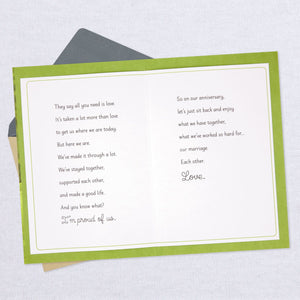 They say all you need is love.
It's taken a lot more than love
to get us where we are today.
But here we are.
We've made it through a lot.
We've stayed together,
supported each other,
and made a good life.
And you know what?
I'm proud of us.
So on our anniversary,
let's just sit back and enjoy
what we have together,
what we've worked so hard for...
our marriage.
Each other.
Love.